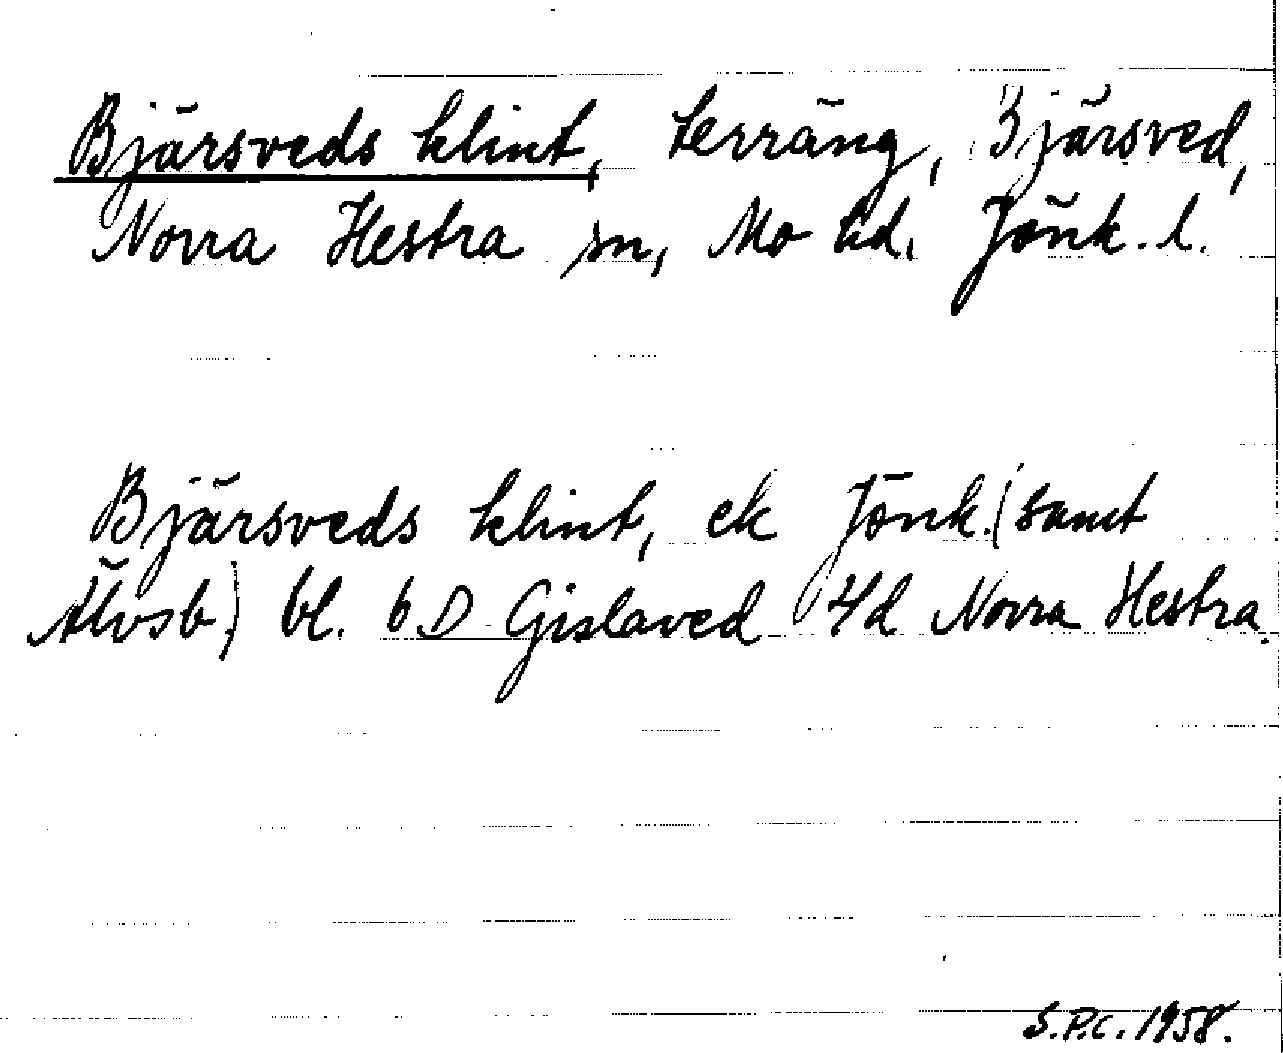 Bjärsveds klint, terräng, Bjärsved,
Norra Hestra sn, Mo hd. Jönk. l.
Bjärsveds klint, ek Jönk. (samt
Älvsb) bl. 6D Gislaved 4d Norra Hestra.
S.P.C. 1958.